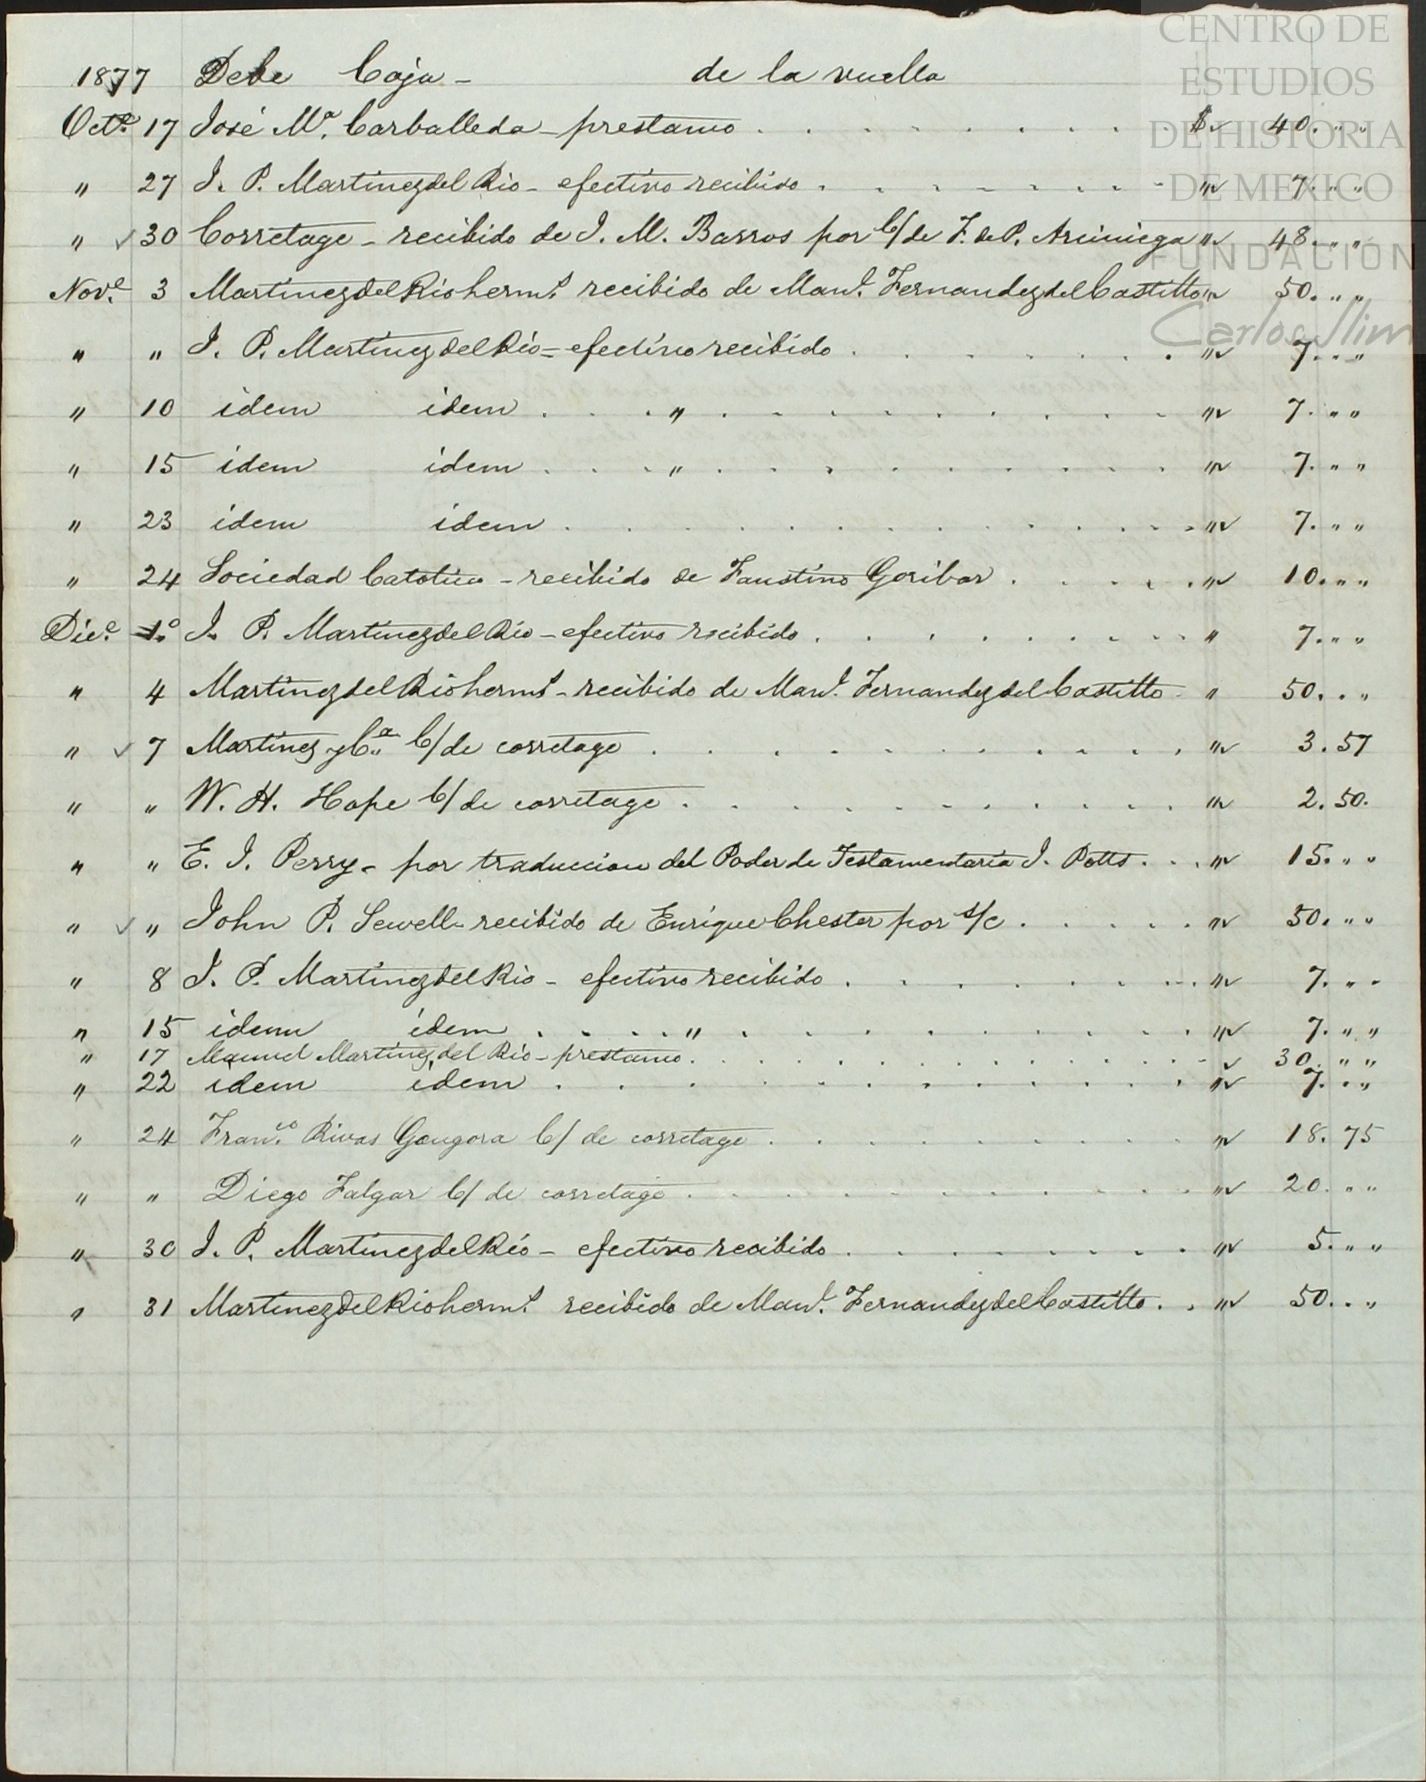 CENTRO DE
ESTUDIOS
DE HISTORIA
DE MEXICO
FUNDACIÓN
Carlos Slim
1877 Debe Caja - de la vuelta
Octe. 17 José Ma. Carballeda - prestamo . . . . . . . . . $ 40. " "
" 27 J. P. Martinez del Rio - efectivo recibido . . . . . . . . " 7. " "
" √ 30 Corretage - recibido de J. M. Barros por C/ de F. de P. Arciniega " 48. " "
Nove. 3 Martinez del Rio herms. recibido de Manl. Fernandez del Castillo " 50. " "
" " J. P. Martinez del Rio = efectivo recibido . . . . . . . . " 7. " "
" 10 idem idem . . . " . . . . . . . . . . " 7. " "
" 15 idem idem . . . " . . . . . . . . . . " 7. " "
" 23 idem idem . . . . . . . . . . . . . . " 7. " "
" 24 Sociedad Catolica - recibido de Faustino Goribar . . . . . " 10. " "
Dice. 1.º J. P. Martinez del Rio - efectivo recibido . . . . . . . . . " 7. " "
" 4 Martinez del Rio herms. - recibido de Manl. Fernandez del Castillo " 50. " "
" √ 7 Martinez y Ca. C/ de corretage . . . . . . . . . . . " 3. 57
" " W. H. Hope C/ de corretage . . . . . . . . . . . " 2. 50.
" " E. J. Perry - por traduccion del Poder de Testamentaria J. Potts . . . " 15. " "
" √ " John P. Sewell - recibido de Enrique Chester por s/c . . . . . " 50. " "
" 8 J. P. Martinez del Rio - efectivo recibido . . . . . . . . " 7. " "
" 15 idem idem . . . . " . . . . . . . . . . " 7. " "
" 17 Manuel Martinez del Rio - prestamo . . . . . . . . . . . . " 30. " "
" 22 idem idem . . . . . . . . . . . . . " 7. " "
" 24 Franco. Rivas Gongora C/ de corretage . . . . . . . . . . " 18. 75
" " Diego Falgar C/ de corretage . . . . . . . . . . . . " 20. " "
" 30 J. P. Martinez del Rio - efectivo recibido . . . . . . . . " 5. " "
" 31 Martinez del Rio herms. recibido de Manl. Fernandez del Castillo . . " 50. " "